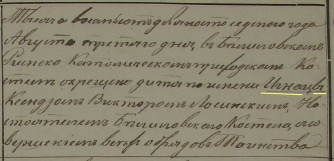 Тысяча восемьсотъ девяносто седьмого года
Августа третьяго дня, въ Бѣшиловскомъ
Римско Католическомъ приходскомъ Ко-
стелѣ окрещено дитя по имени Игнатъ
Ксендзомъ Викторомъ Лосинскимъ, На
стоятелемъ Костела, съ со
вершеніемъ всѣхъ обрядовъ Таинства